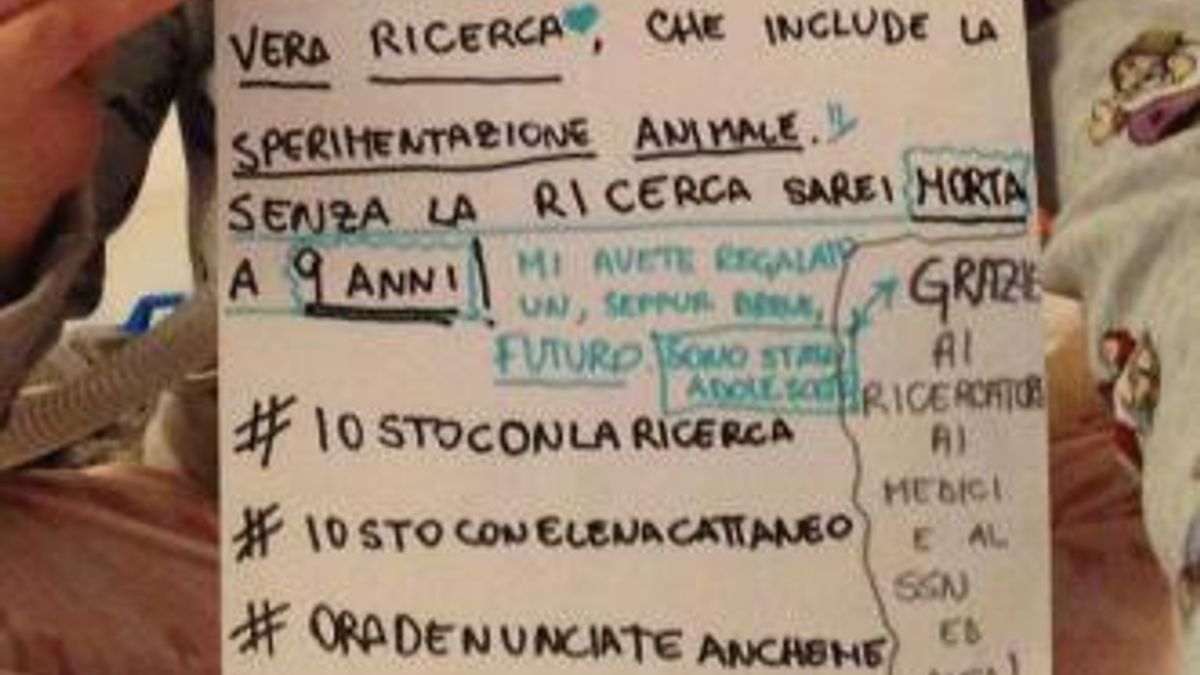 VERA RICERCA, CHE INCLUDE LA
SPERIMENTAZIONE ANIMALE.
SENZA LA RICERCA SAREI MORTA
A 9 ANNI!
MI AVETE REGALATO
UN, SEPPUR BREVE,
FUTURO. SONO STATA
# IOSTOCONLARICERCA
# IOSTOCONELENACATTANEO
# ORADENUNCIATEANCHEME
GRAZIE
AI
RICERCATORI
AI
MEDICI
E AL
SSN
ED